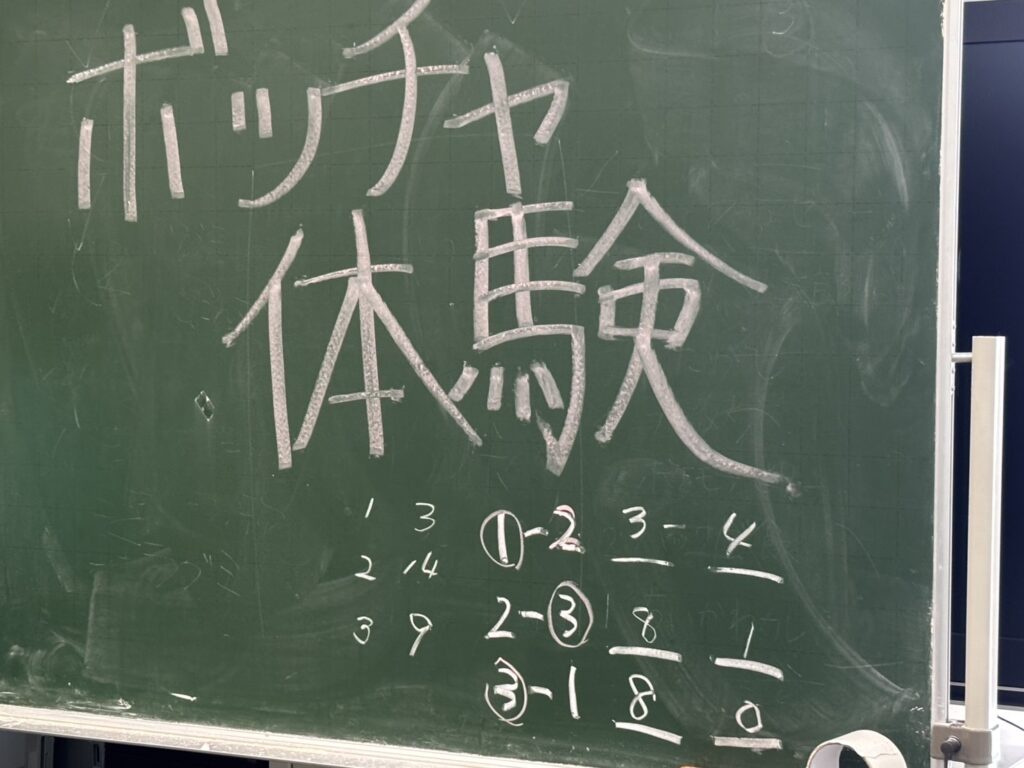 ボッチャ
体験
1 3 ①-2 3 - 4
2 14 2-③ 8 1
3 9 ③-1 8 0